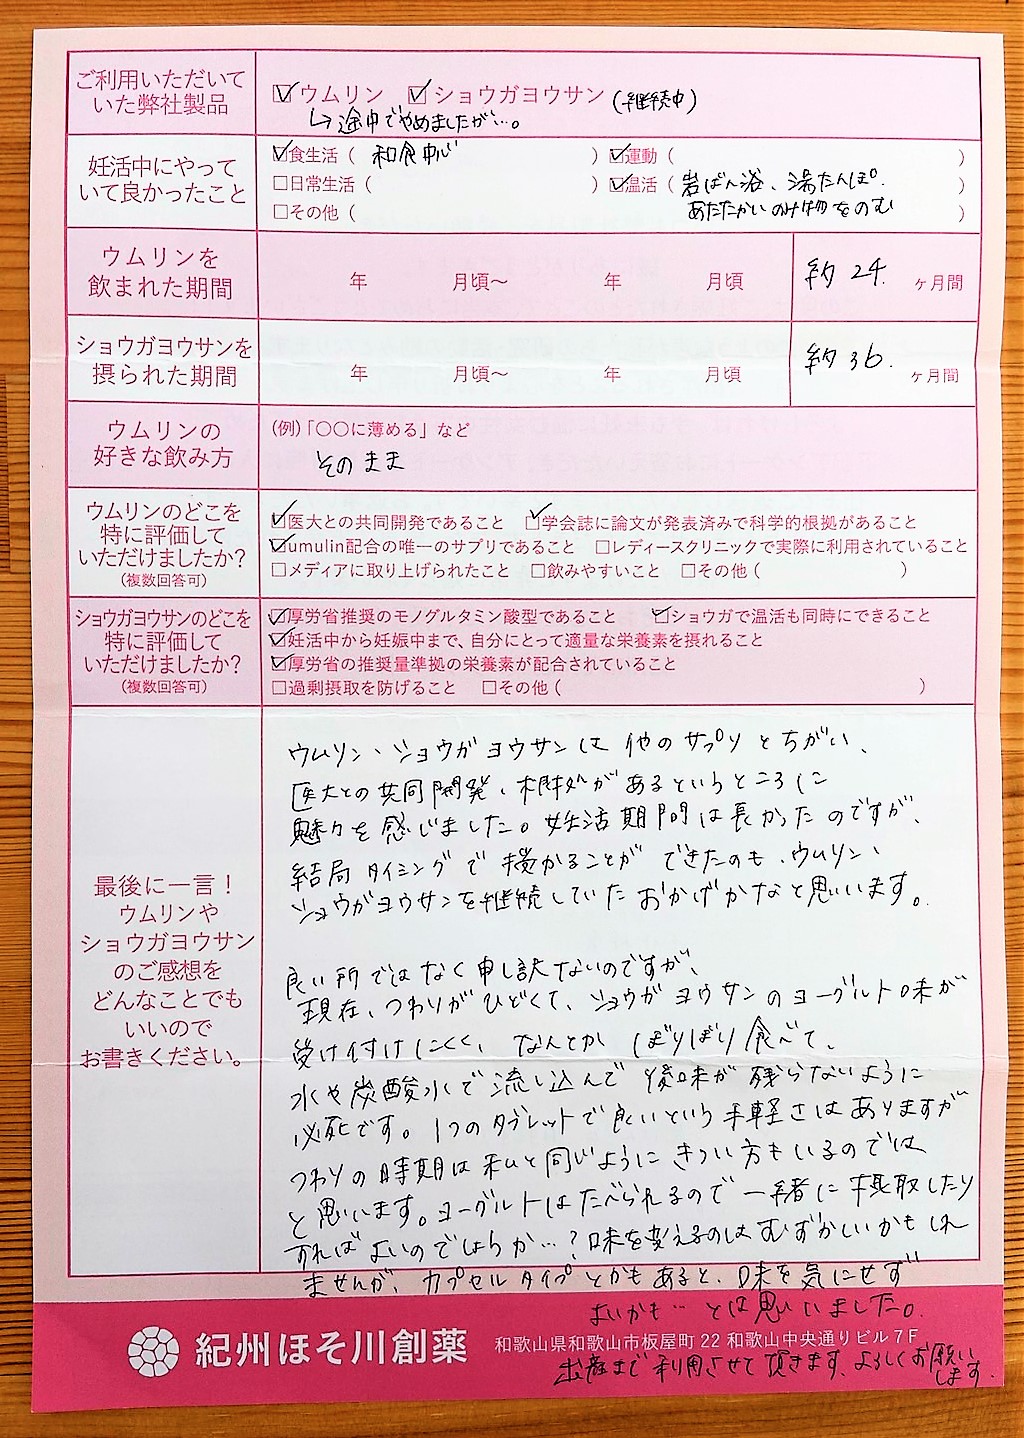 ご利用いただいて
いた弊社製品
☑ウムリン ☑ショウガヨウサン(継続中)
↳途中でやめましたが…。
妊活中にやって
いて良かったこと
☑食生活(和食中心) ☑運動( )
□日常生活( ) ☑温活(岩ばん浴、湯たんぽ。
□その他( ) あたたかいのみ物をのむ )
ウムリンを
飲まれた期間
年 月頃〜 年 月頃 約24. ヶ月間
ショウガヨウサンを
摂られた期間
年 月頃〜 年 月頃 約36. ヶ月間
ウムリンの
好きな飲み方
(例)「〇〇に薄める」など
そのまま
ウムリンのどこを
特に評価して
いただけましたか?
(複数回答可)
☑医大との共同開発であること ☑学会誌に論文が発表済みで科学的根拠があること
☑umulin配合の唯一のサプリであること □レディースクリニックで実際に利用されていること
□メディアに取り上げられたこと □飲みやすいこと □その他( )
ショウガヨウサンのどこを
特に評価して
いただけましたか?
(複数回答可)
☑厚労省推奨のモノグルタミン酸型であること ☑ショウガで温活も同時にできること
☑妊活中から妊娠中まで、自分にとって適量な栄養素を摂れること
☑厚労省の推奨量準拠の栄養素が配合されていること
□過剰摂取を防げること □その他( )
最後に一言!
ウムリンや
ショウガヨウサン
のご感想を
どんなことでも
いいので
お書きください。
ウムリン、ショウガヨウサンは他のサプリとちがい、
医大との共同開発、根拠があるというところに
魅力を感じました。妊活期間は長かったのですが、
結局タイミングで授かることができたのも、ウムリン、
ショウガヨウサンを継続していたおかげかなと思います。
良い所ではなく申し訳ないのですが、
現在、つわりがひどくて、ショウガヨウサンのヨーグルト味が
受け付けにくく、なんとかぼりぼり食べて、
水や炭酸水で流し込んで後味が残らないように
必死です。1つのタブレットで良いという手軽さはありますが
つわりの時期は私と同じようにきつい方もいるのでは
と思います。ヨーグルトはたべられるので一緒に摂取したり
すればよいのでしょうか…?味を変えるのはむずかしいかもしれ
ませんが、カプセルタイプとかもあると、味を気にせず
よいかも…とは思いました。
紀州ほそ川創薬 和歌山県和歌山市板屋町22 和歌山中央通りビル7F
出産まで利用させて頂きます、よろしくお願い
します.